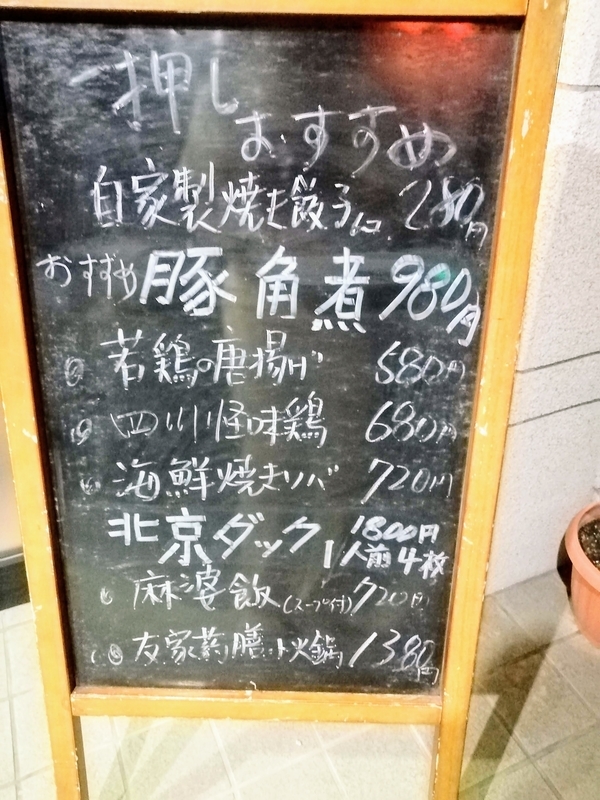 一押し
おすすめ
自家製焼き餃子 280円
おすすめ 豚角煮 980円
若鶏の唐揚げ 580円
四川怪味鶏 680円
海鮮焼きソバ 720円
北京ダック 1800円
1人前4枚
麻婆飯(スープ付) 720円
友家薬膳火鍋 1380円